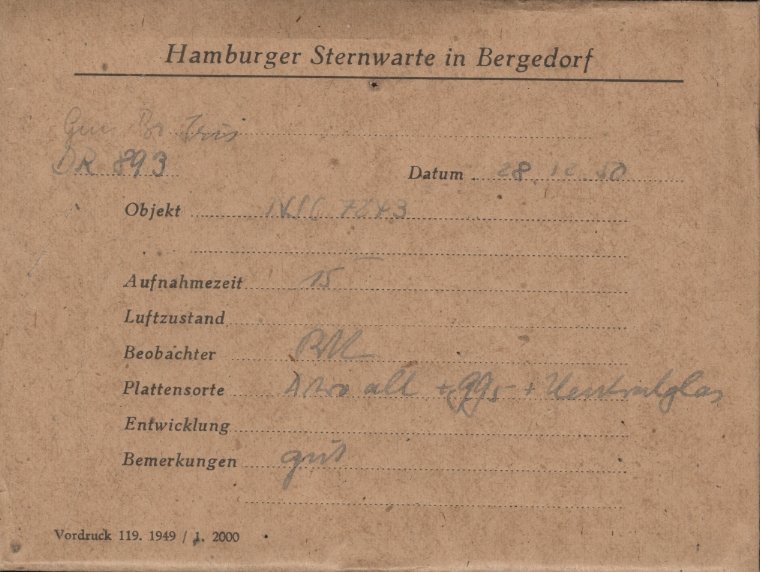 Hamburger Sternwarte in Bergedorf
DR 893
Datum 28. 12. 50
Objekt NGC
Aufnahmezeit 15
Luftzustand
Beobachter
Plattensorte Astro alt + gg5 + Neutralglas
Entwicklung
Bemerkungen gut
Vordruck 119. 1949 / 1. 2000